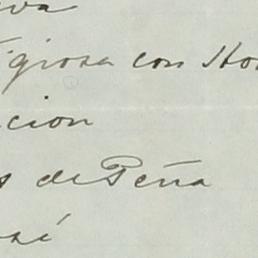 va
igiosa con Ho
cion
s de Peña
osé